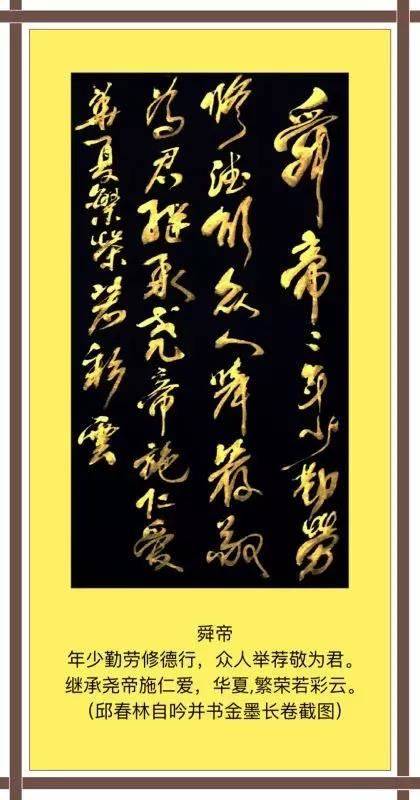 舜帝:年少勤勞
修德行众人举荐敬
為君継承尧帝施仁愛
華夏繁荣若彩雲
舜帝
年少勤劳修德行，众人举荐敬为君。
继承尧帝施仁爱，华夏,繁荣若彩云。
（邱春林自吟并书金墨长卷截图）